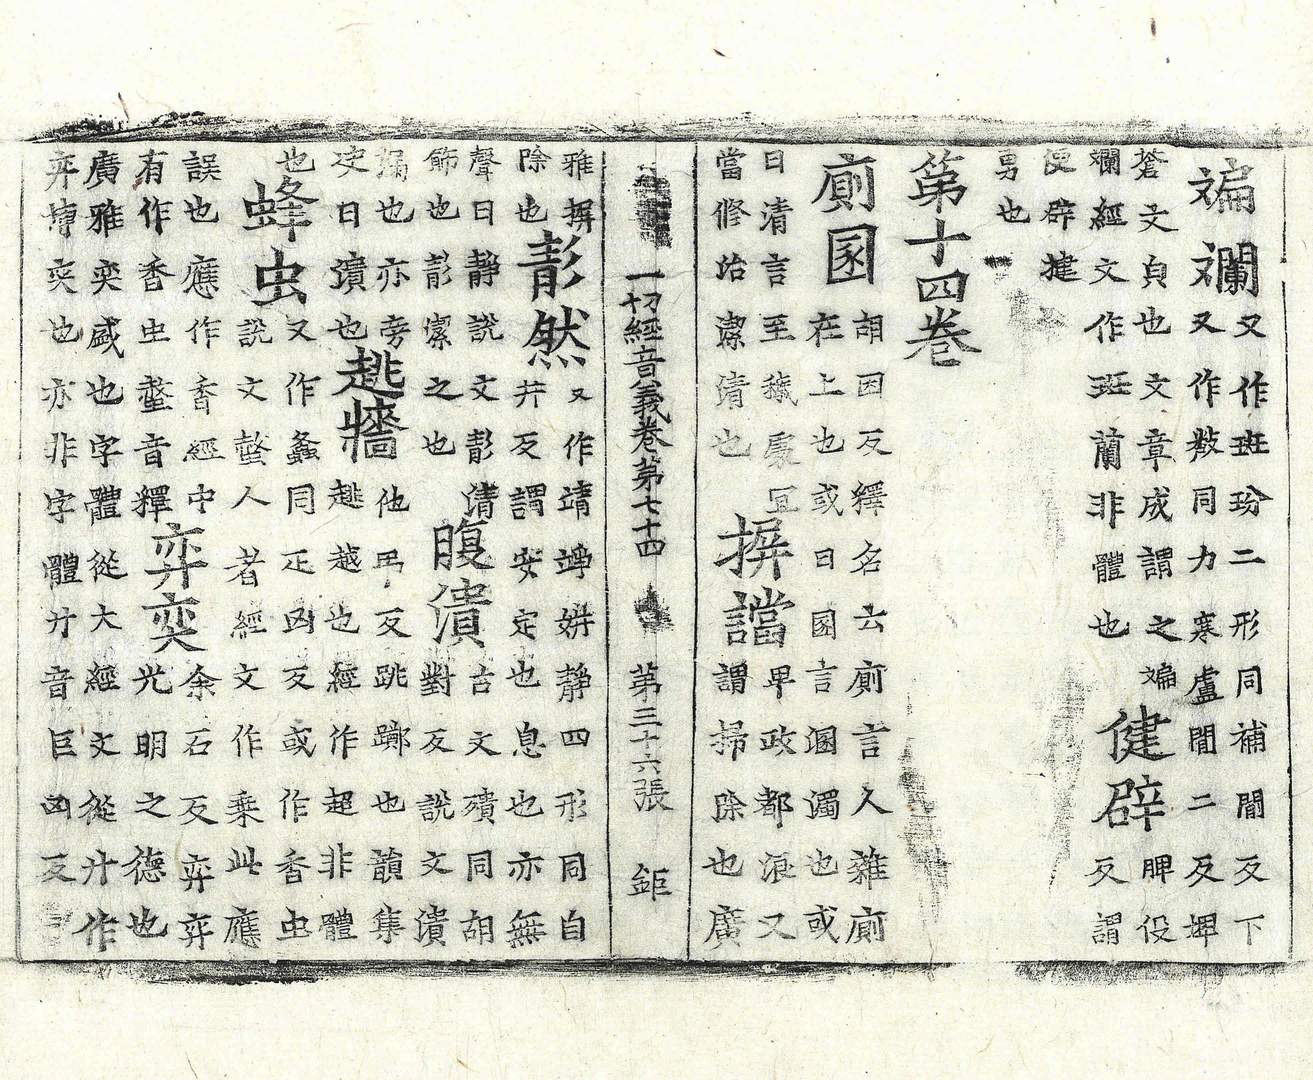 斒斕又作斑玢二形同補閒反下
又作㪵同力寒盧閒二反埤
蒼文皃也文章成謂之斒
斕經文作斑蘭非體也健辟脾役
反謂
便辟揵
勇也
第十四卷
廁圂胡困反釋名云廁言人雜廁
在上也或曰圂言溷濁也或
曰清言至穢處宜
當修治潔清也摒擋卑政都浪又
謂掃除也廣
一切經音義卷第七十四 第三十六張 鉅
雅摒
除也然又作靖竫妌靜四形同自
井反謂安定也息也亦無
聲曰靜說文清
飾也潔之也腹潰古文殨同胡
對反說文潰
漏也亦旁
决曰潰也趒牆他弔反跳躑也韻集
趒越也經作超非體
也蜂虫又作蠭同疋凶反或作香虫
說文螫人者經文作乗此應
誤也應作香經中
有作香虫螫音釋弈奕余石反弈弈
光明之德也
廣雅奕盛也字體從大經文從廾作
弈博奕也亦非字體廾音巨凶反